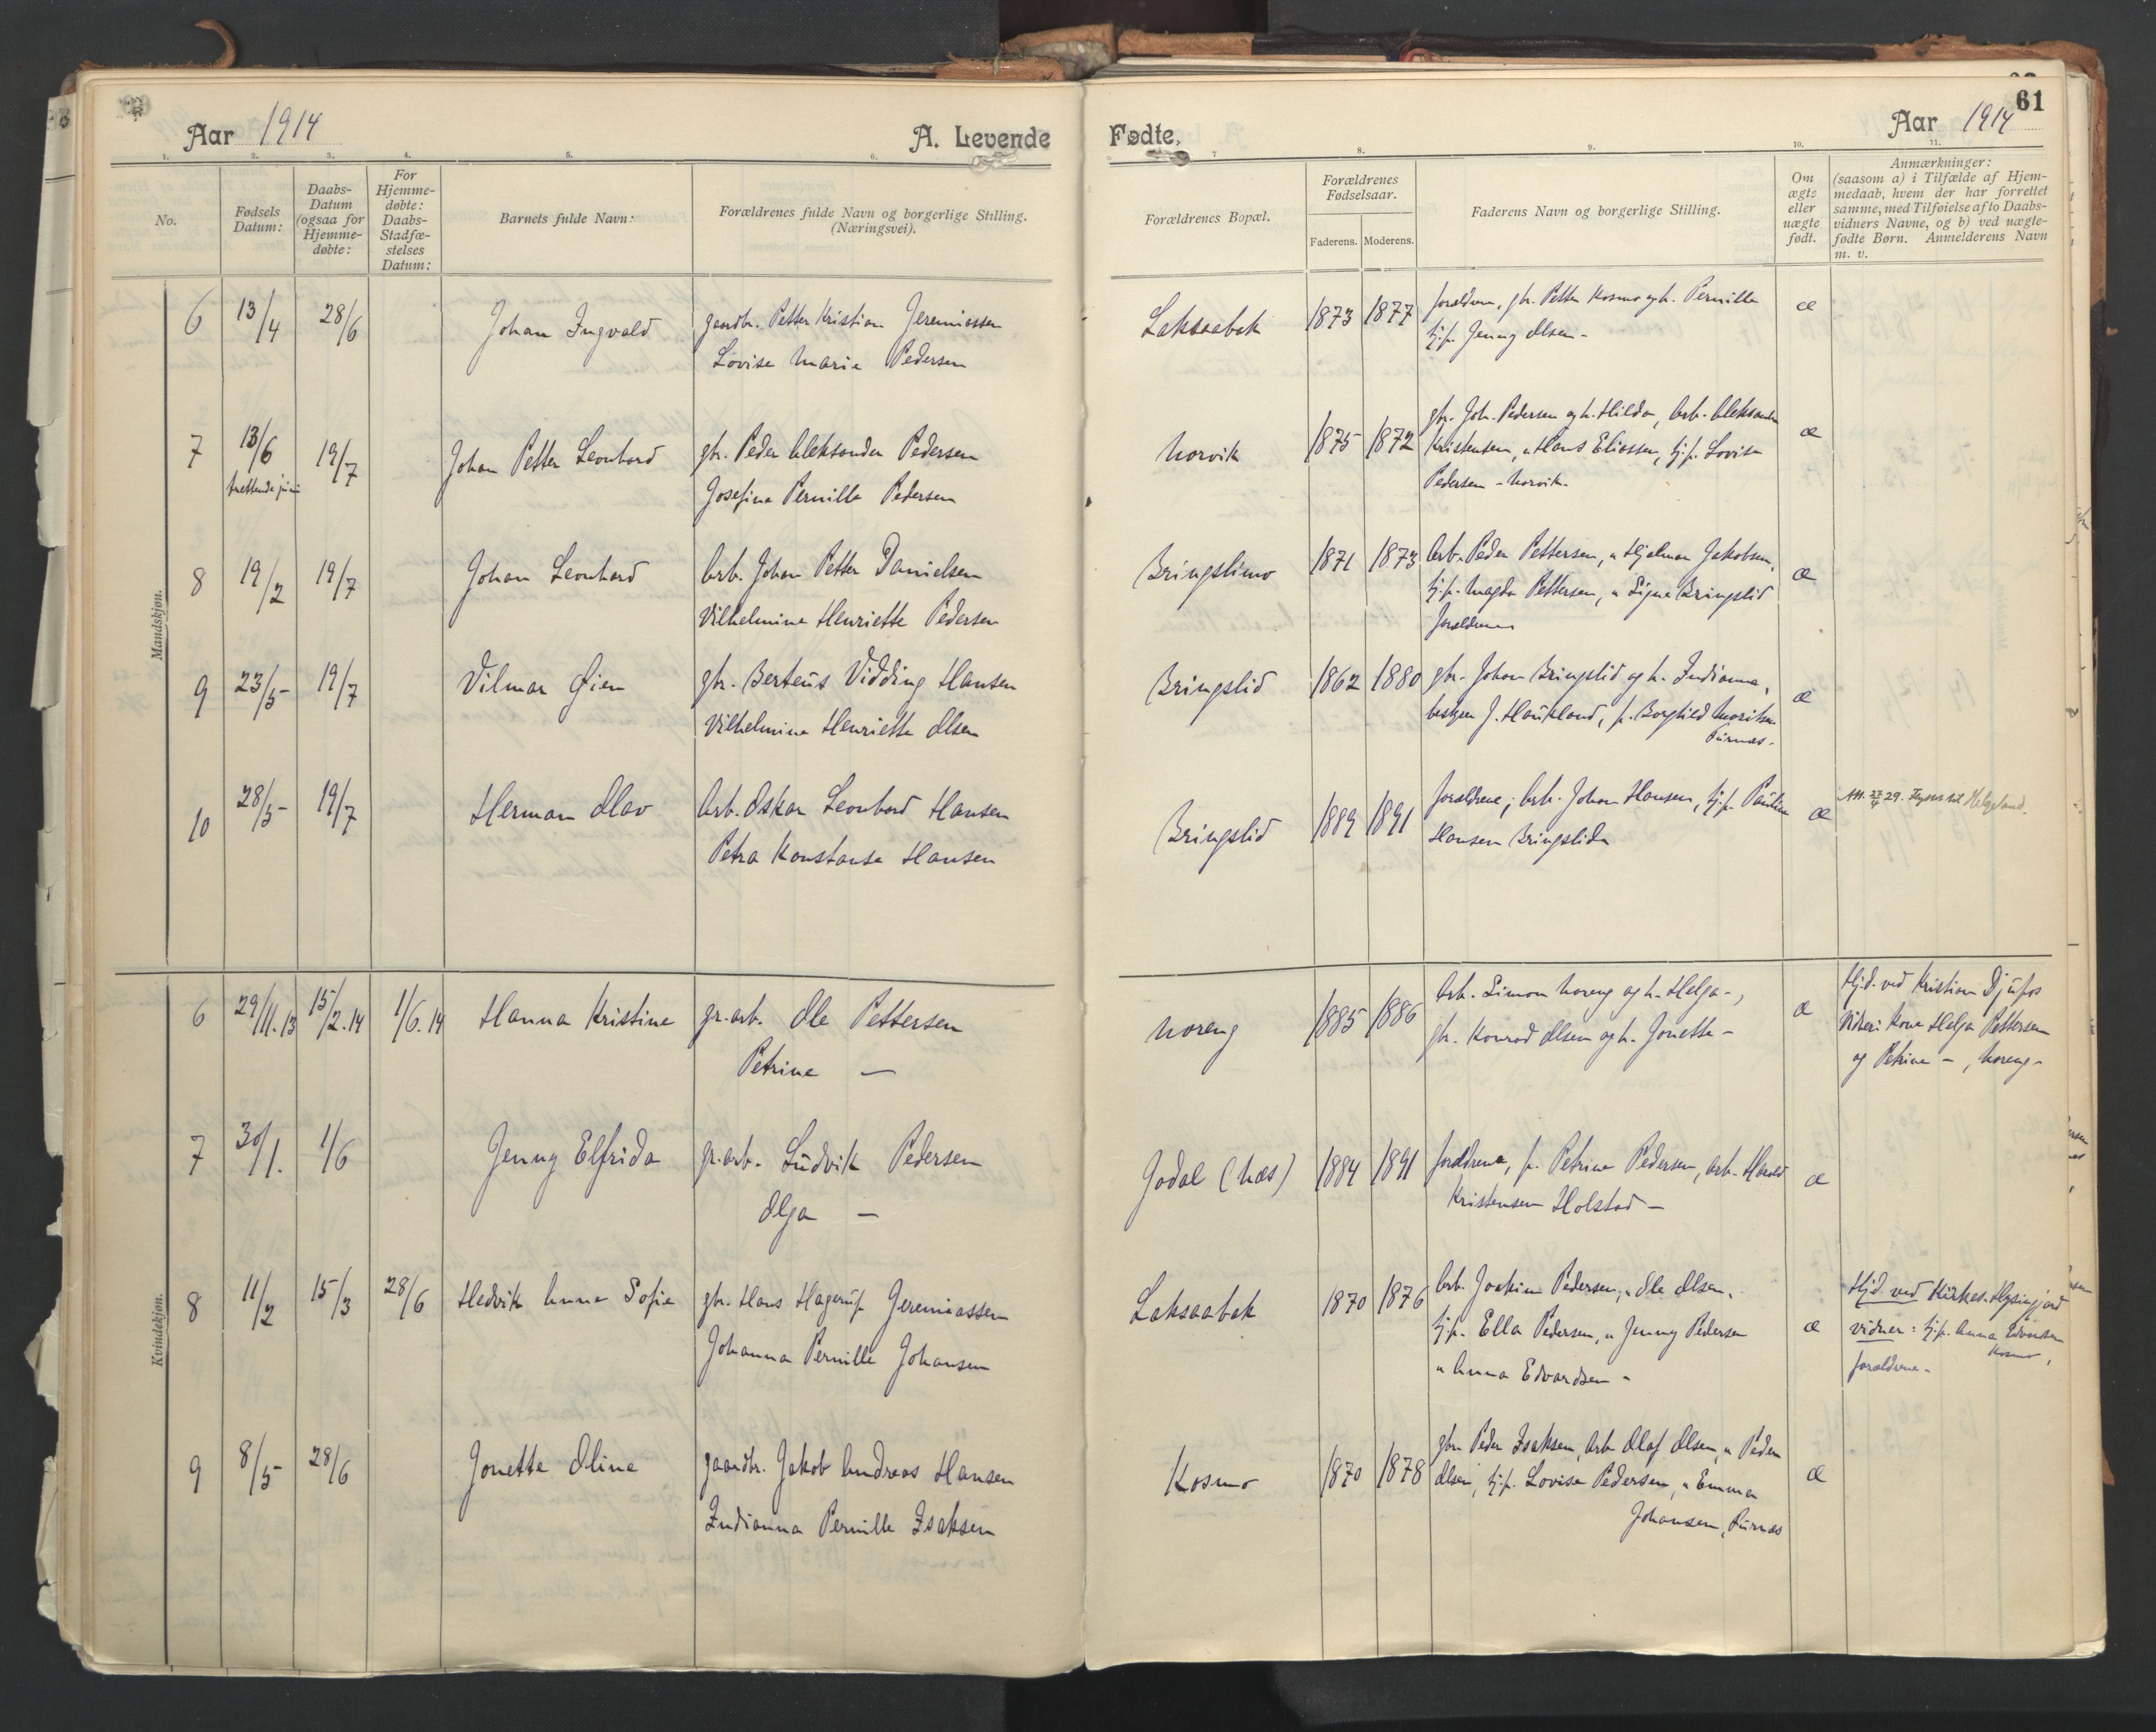 61
Aar 1914 A. Levende Fødte, Aar 1914
1. 2. 3. 4. 5. 6. 7 8. 9. 10. 11.
No.
Fødsels Datum:
Daabs-
Datum
(ogsaa for
Hjemme-
døbte:
For
Hjemme-
døbte:
Daabs-
Stadfæ-
stelses
Datum:
Barnets fulde Navn:
Forældrenes fulde Navn og borgerlige Stilling.
(Næringsvei).
Forældrenes Bopæl.
Forældrenes
Fødselsaar.
Faderens. Moderens.
Faderens Navn og borgerlige Stilling.
Om
ægte
eller
uægte
født.
Anmærkninger:
(saasom a) i Tilfælde af Hjem-
medaab, hvem der har forrettet
samme, med Tilføielse af to Daabs-
vidners Navne, og b) ved uægte-
fødte Børn. Anmelderens Navn
m. v.
Mandskjøn.
6 13/4 28/6 Johan Ingvald gaardbr. Petter Kristian Jeremiassen
Lovise Marie Pedersen
Laksaabak 1873 1877 forældrene, gbr. Petter Kosmo og h. Pernille
tj.p. Jenny Olsen - æ
7 13/6 trettende juni 19/7 Johan Petter Leonhard gbr. Peder Aleksander Pedersen
Josefine Pernille Pedersen
Norvik 1875 1872 gbr. Joh. Pedersen og h. Hilda, Arb. Aleksander
Kristensen, " Hans Eliassen, tj.p. Lovise
Pedersen - Norvik. æ
8 19/2 19/7 Johan Leonhard Arb. Johan Petter Danielsen
Vilhelmine Henriette Pedersen
Bringslimo 1871 1873 Arb. Peder Pettersen, " Hjalmar Jakobsen,
tj.p. Magda Pettersen, " Signe Bringslid
forældrene æ
9 23/5 19/7 Vilmar Øien gbr. Berteus Vidding Hansen
Vilhelmine Henriette Olsen
Bringslid 1862 1880 gbr. Johan Bringslid og h. Indianna,
bestyrer J. Haukland, p. Borghild Moritsen
Furnes - æ
10 28/5 19/7 Herman Olav Arb. Oskar Leonhard Hansen
Petra Konstanse Hansen
Bringslid 1889 1891 forældrene; Arb. Johan Hansen, tj.p. Pauline
Hansen Bringslid æ
Att. 27/4 29. til Helgeland.
Kvindekjøn.
6 29/11.13 15/2.14 1/6.14 Hanna Kristine gr.arb. Ole Pettersen
Petrine —
Noreng 1885 1886 Arb. Simon Noreng og h. Helga -,
gbr. Konrad Olsen og h. Jonette - æ
Hjd. ved Kristian Djupos
Vidner: Kone Helga Pettersen
og Petrine -, Noreng -
7 30/1. 1/6 Jenny Elfrida gr.arb. Ludvik Pedersen
Olga —
Godal (Næs) 1884 1891 forældrene, p. Petrine Pedersen, arb. Harald
Kristensen Holstad - æ
8 11/2 15/3 28/6 Hedvik Anna Sofie gbr. Hans Hagerup Jeremiassen
Johanna Pernille Johansen
Laksaabak 1870 1876 Arb. Joakim Pedersen, " Ole Olsen,
tj.p. Ella Pedersen, " Jenny Pedersen
" Anna Edvardsen - æ
Hjd. ved Kirkes.
vidner: tj.p. Anna Edvardsen
Kosmo,
forældrene -
9 8/5 28/6 Jonette Oline gaardbr. Jakob Andreas Hansen
Indianna Pernille Isaksen
Kosmo 1870 1878 gbr. Peder Isaksen, Arb Olaf Olsen, " Peder
Olsen, tj.p. Lovise Pedersen, " Emma
Johansen, Furnes æ